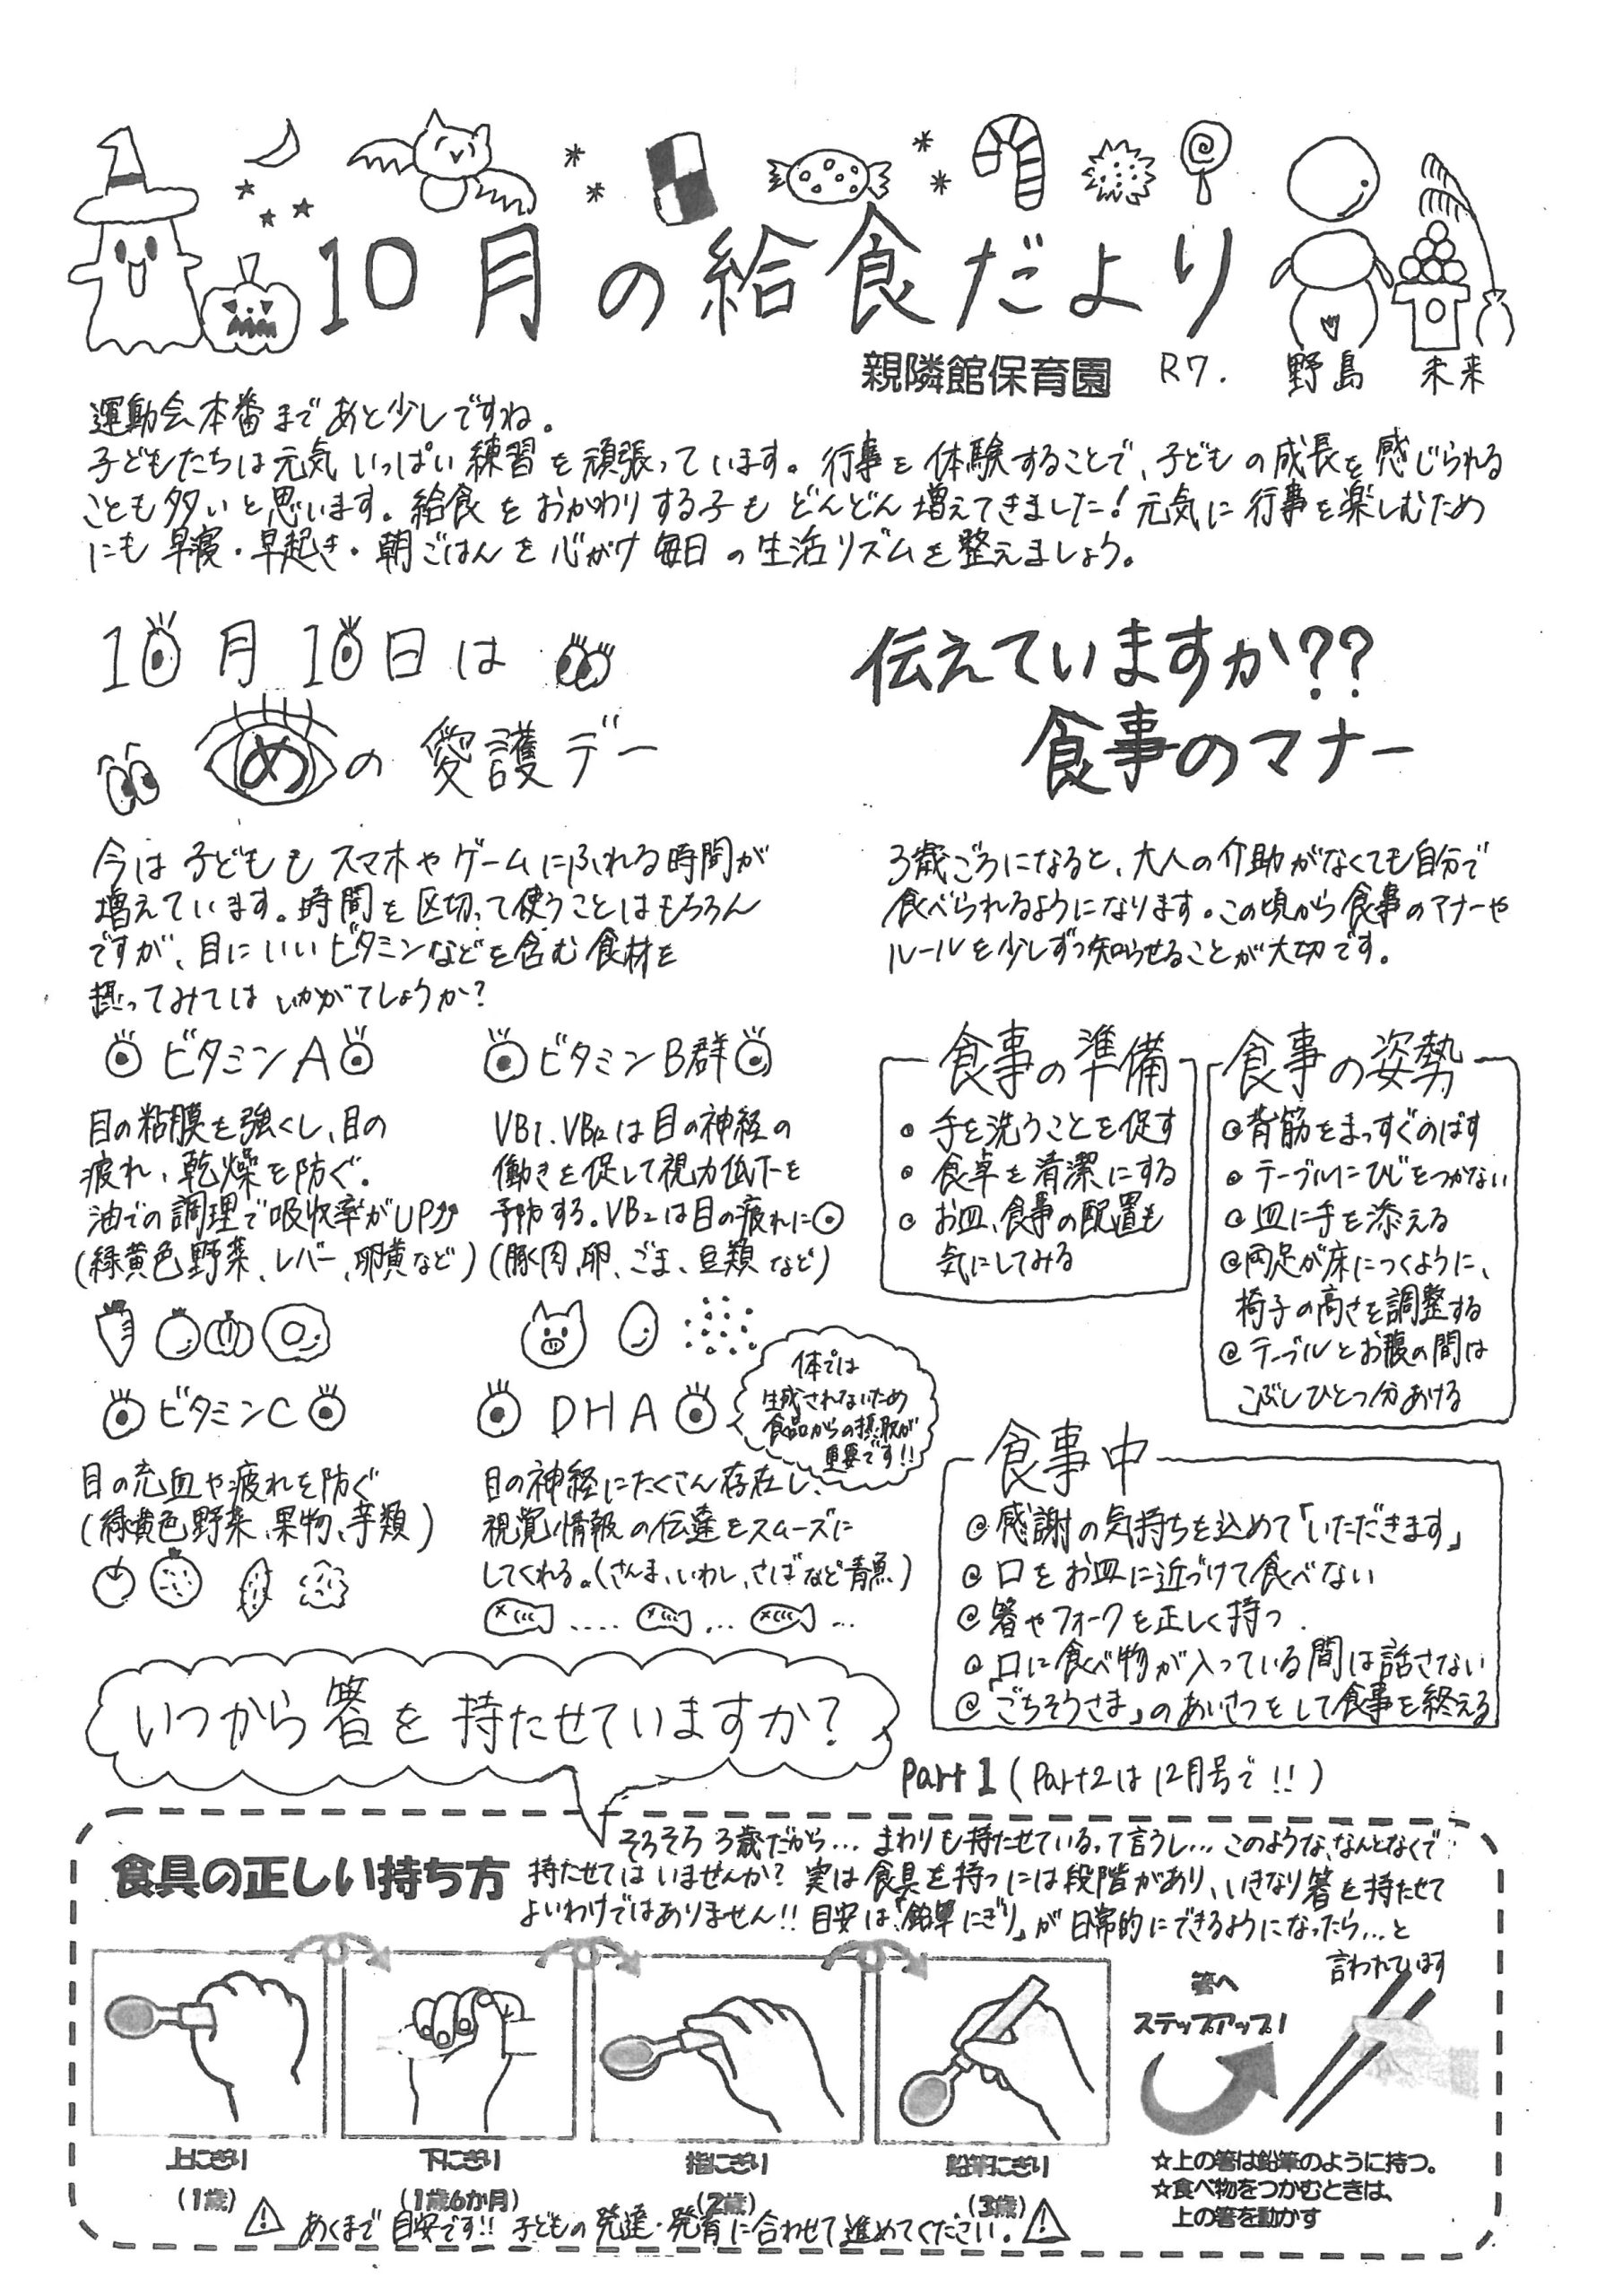 10月の給食だより
親隣館保育園 R7. 野島 未来
運動会本番まであと少しですね。
子どもたちは元気いっぱい練習を頑張っています。行事を体験することで、子どもの成長を感じられる
ことも多いと思います。給食をおかわりする子もどんどん増えてきました!元気に行事を楽しむため
にも早寝・早起き・朝ごはんを心がけ毎日の生活リズムを整えましょう。
10月10日は
めの愛護デー
今は子どももスマホやゲームにふれる時間が
増えています。時間を区切って使うことはもちろん
ですが、目にいいビタミンなどを含む食材を
摂ってみてはいかがでしょうか?
ビタミンA
目の粘膜を強くし、目の
疲れ、乾燥を防ぐ。
油での調理で吸収率がUP⤴⤴
(緑黄色野菜、レバー、卵黄など)
ビタミンB群
VB1、VB12は目の神経の
働きを促して視力低下を
予防する。VB2は目の疲れに◎
(豚肉、卵、ごま、豆類など)
ビタミンC
目の充血や疲れを防ぐ
(緑黄色野菜、果物、芋類)
DHA
体では
生成されないため
食品からの摂取が
重要です!!
目の神経にたくさん存在し、
視覚情報の伝達をスムーズに
してくれる。(さんま、いわし、さばなど青魚)
伝えていますか??
食事のマナー
3歳ごろになると、大人の介助がなくても自分で
食べられるようになります。この頃から食事のマナーや
ルールを少しずつ知らせることが大切です。
食事の準備
• 手を洗うことを促す
• 食卓を清潔にする
• お皿、食事の配置も
気にしてみる
食事の姿勢
• 背筋をまっすぐのばす
• テーブルにひじをつかない
• 皿に手を添える
• 両足が床につくように、
椅子の高さを調整する
• テーブルとお腹の間は
こぶしひとつ分あける
食事中
• 感謝の気持ちを込めて「いただきます」
• 口をお皿に近づけて食べない
• 箸やフォークを正しく持つ
• 口に食べ物が入っている間は話さない
• 「ごちそうさま」のあいさつをして食事を終える
いつから箸を持たせていますか?
Part1(Part2は12月号で!!)
食具の正しい持ち方
そろそろ3歳だから… まわりも持たせているって言うし… このような、なんとなくで
持たせてはいませんか? 実は食具を持つには段階があり、いきなり箸を持たせて
よいわけではありません!! 目安は、「鉛筆にぎり」が日常的にできるようになったら…と
言われています
箸へ
ステップアップ!
上にぎり
(1歳)
下にぎり
(1歳6か月)
指にぎり
(2歳)
鉛筆にぎり
(3歳)
☆上の箸は鉛筆のように持つ。
☆食べ物をつかむときは、
上の箸を動かす
⚠あくまで目安です!! 子どもの発達・発育に合わせて進めてください。⚠